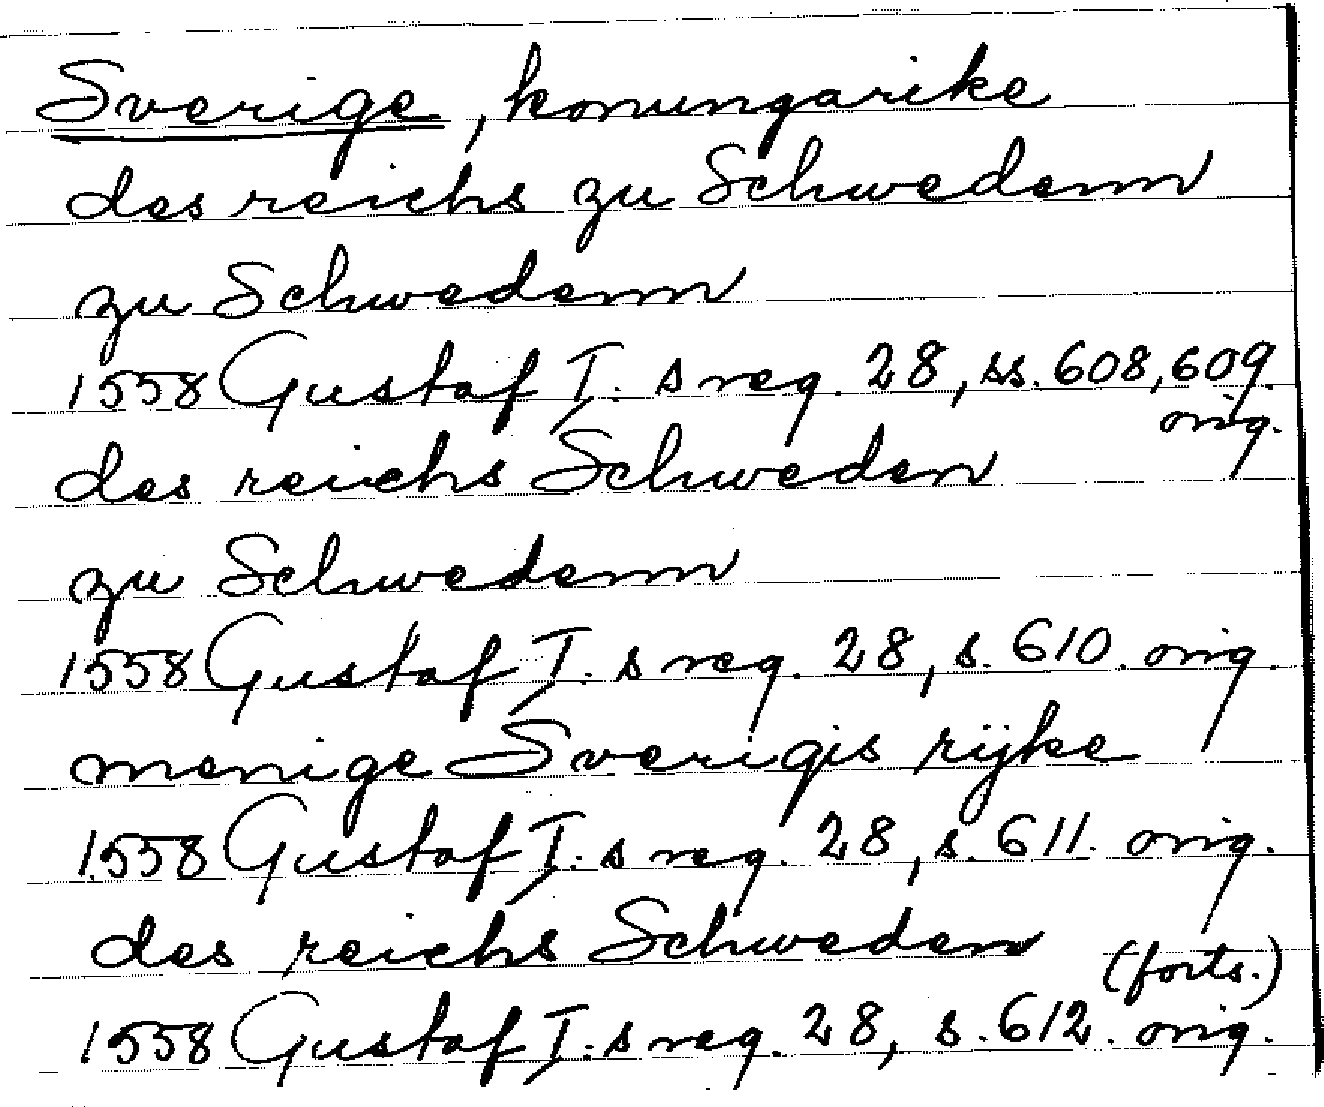 Sverige, konungarike
des reichs zu Schwedenn
zu Schwedenn
1558 Gustaf I:s reg. 28, ss. 608, 609.
orig.
des reichs Schweden
zu Schwedenn
1558 Gustaf I:s reg. 28, s. 610. orig.
menige Sverigis rijke
1558 Gustaf I:s reg. 28, s. 611. orig.
des reichs Schweden
(forts.)
1558 Gustaf I:s reg. 28, s. 612. orig.